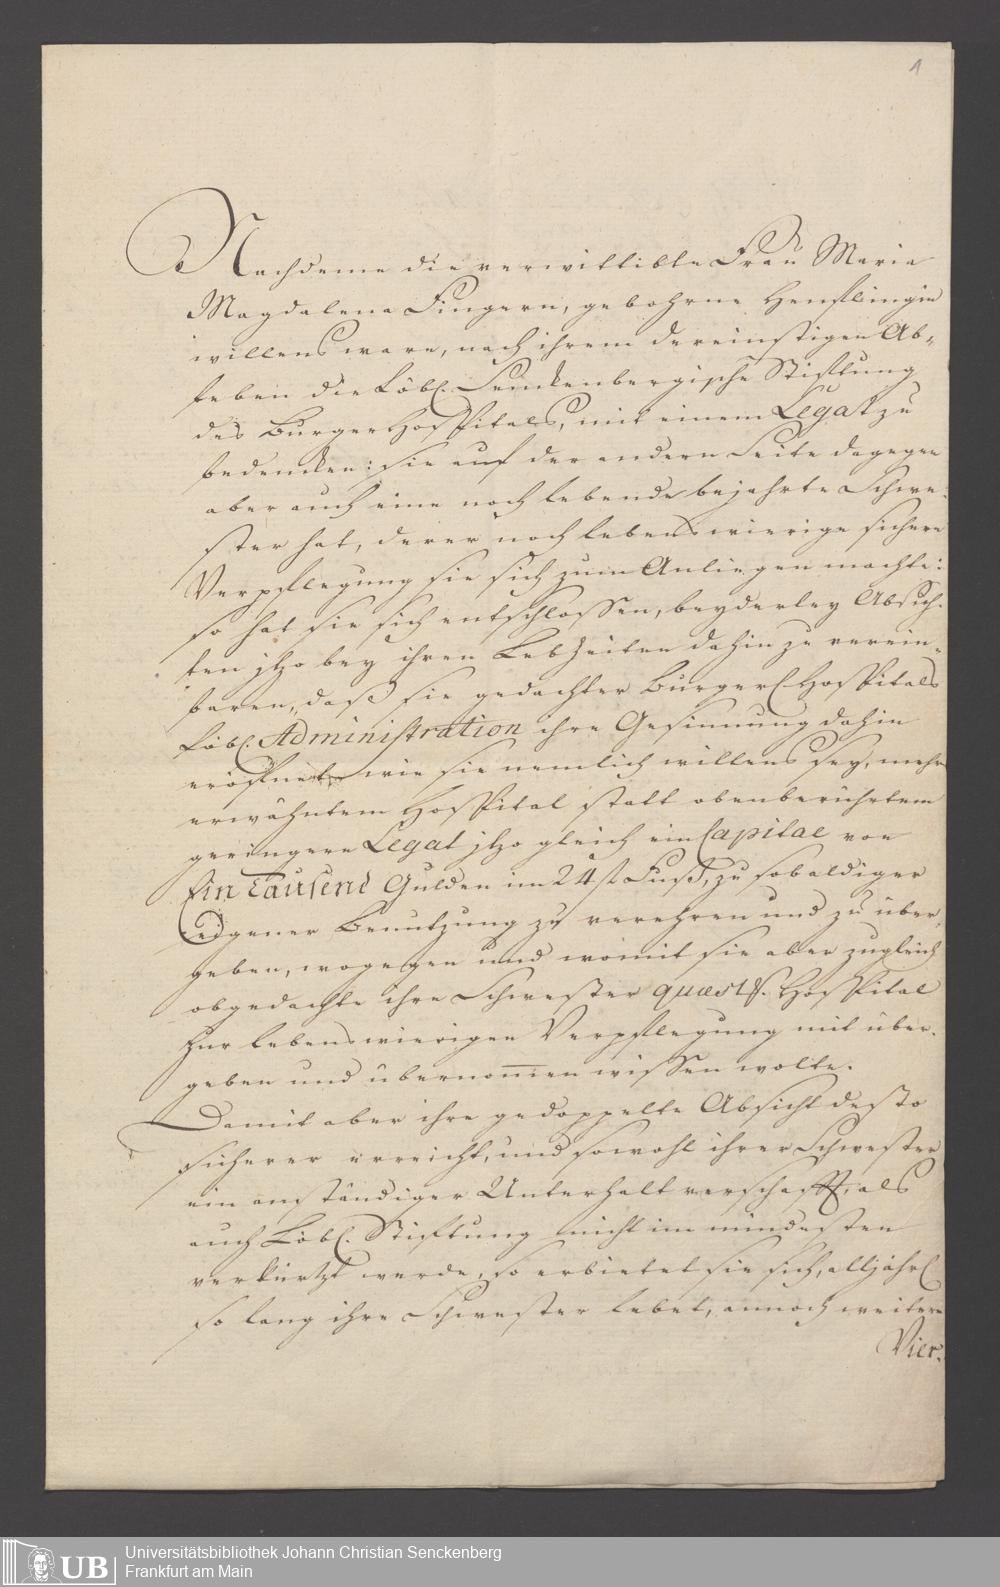 1
Nachdeme die verwittibte Frau Maria
Magdalena Fingern, gebohrne Henßlingin
willens ware, nach ihrem dereinstigen Ab„
leben die Löbl. Senckenbergische Stiftung
des Burger Hospitals, mit einem Legat zu
bedencken: sie auf der andern Seite dagegen
aber auch eine noch lebende bejahrte Schwe„
ster hat, derer noch lebenswierige sichere
Verpflegung sie sich zum Anliegen machte:
so hat sie sich entschlossen, beyderley Absich„
ten jtzo bey ihren Lebzeiten dahin zu verein„
baren, daß sie gedachter Burgerl. Hospitals
Löbl. Administration ihre Gesinnung dahin
eröfnete wie sie nemlich willens sey, mehr
erwähntem Hospital statt obenberührtem
geringern Legat jtzo gleich ein Capital von
Ein Tausend Gulden im 24 fl. Fuß, zu sobaldiger
eigener Benutzung zu verehren und zu über„
geben, wogegen und womit sie aber zugleich
obgedachte ihre Schwester quæst. Hospital
zur lebenswierigen Verpflegung mit über„
geben und übernom̅en wissen wolte.
Damit aber ihre gedoppelte Absicht desto
sicherer erreicht, und sowohl ihrer Schwester
ein anständiger Unterhalt verschafft, als
auch Löbl. Stiftung nicht im mindesten
verkürtzt werde, so erbietet sie sich, alljährl.
so lang ihre Schwester lebet, annoch weitere
Vier„
UB
Universitätsbibliothek Johann Christian Senckenberg
Frankfurt am Main